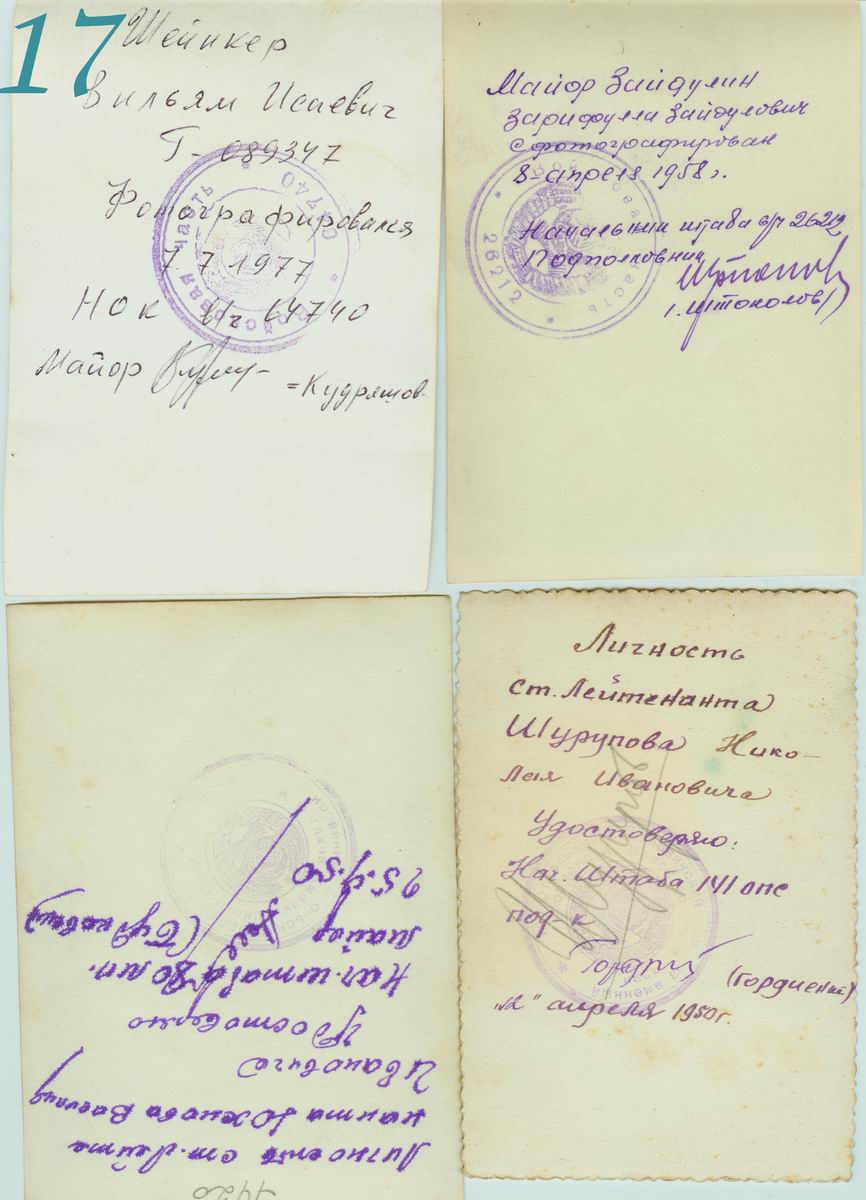 17
Шейнкер
Вильям Исаевич
Г-089347
Фотографировался
7 7 1977
НОК в/ч 64740
Майор
=Кудряшов
войсковая часть
Майор Зайдулин
Зарифулла Зайдулович
сфотографирован
8-апреля 1958 г.
Начальник штаба в/ч 26212
Подполковник
/.Штоколов/
войсковая часть
26212
Личность ст. Лейте
нанта Южнова Василия
Ивановича
Удостоверяю
Нач. штаба 80
майор
25.9.50
Личность
ст. Лейтенанта
Шурупова Нико-
лая Ивановича
Удостоверяю:
Нач. Штаба 141 опс
под-к
(Гордиенко)
"12" апреля 1950г.